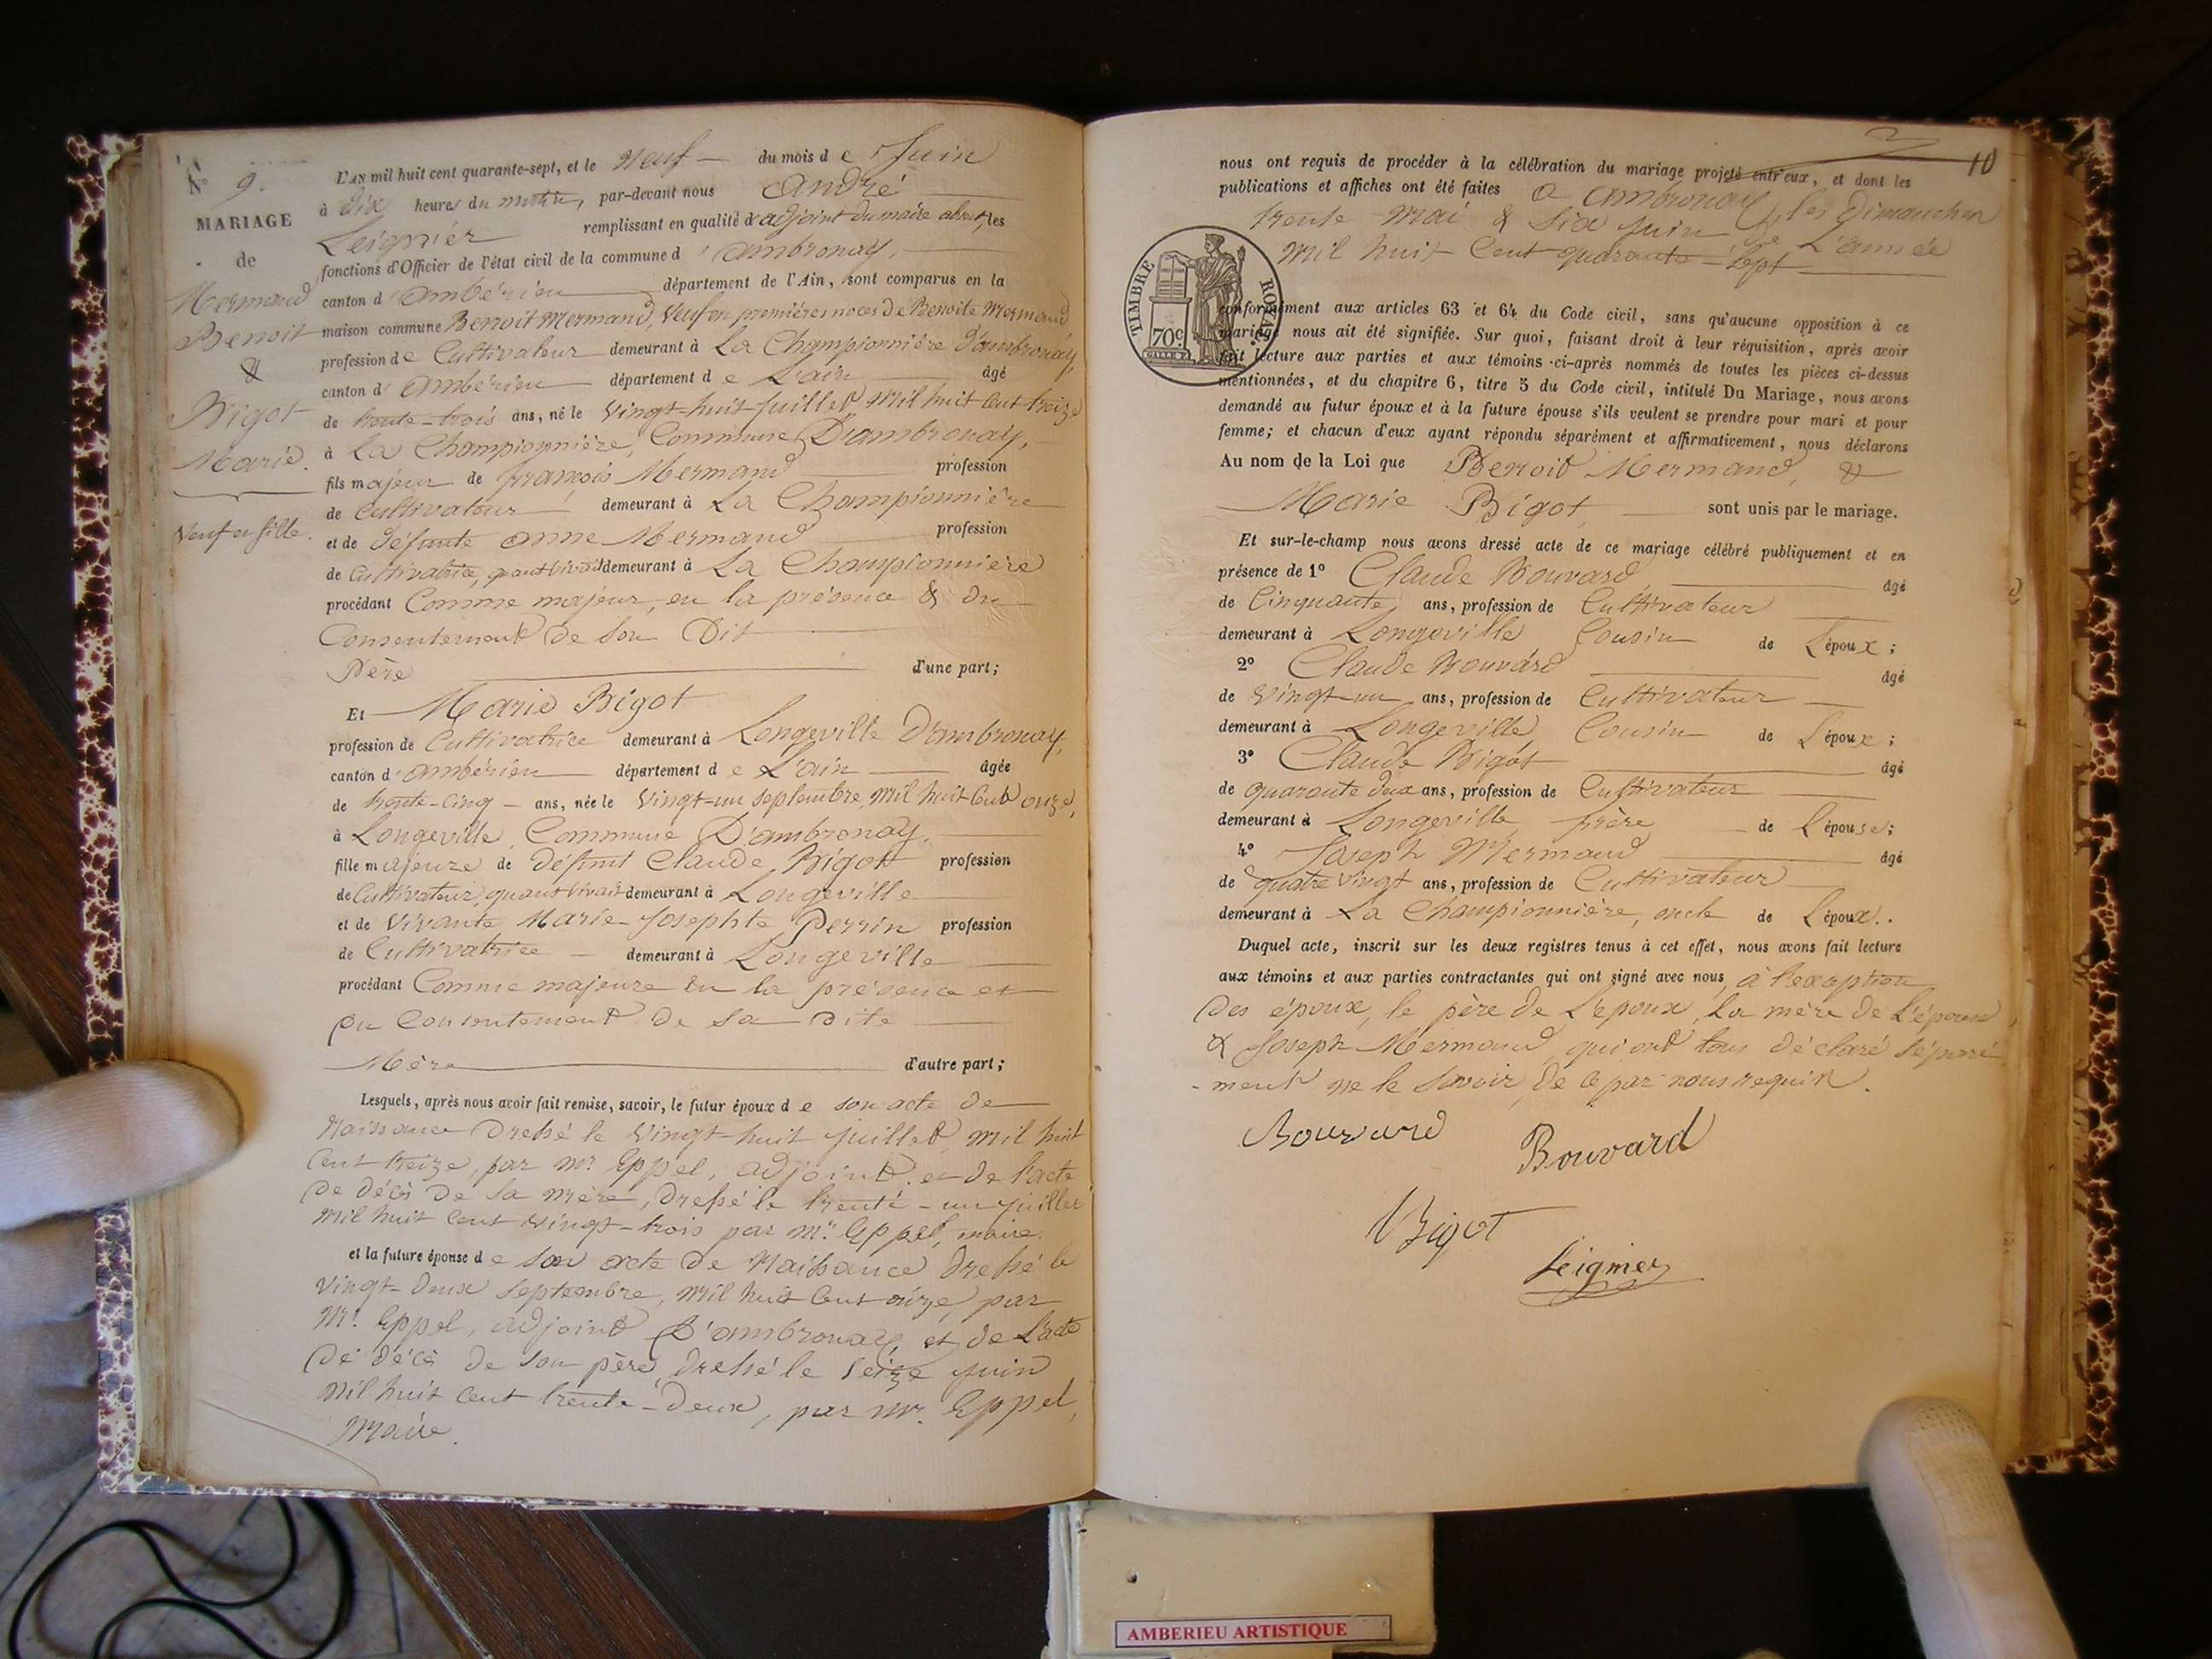 N° 9.
MARIAGE
de
Mermand
Benoit
&
Bigot
Marie.
Veuf et fille.
L'AN mil huit cent quarante-sept, et le Neuf du mois de Juin
à dix heures du matin, par-devant nous André
Leignier remplissant en qualité d'adjoint du maire absent, les
fonctions d'Officier de l'état civil de la commune d'ambronay,
canton d'ambérieu département de l'Ain, sont comparus en la
maison commune Benoit Mermand, Veuf en premières noces de Benoite Mermand,
profession de Cultivateur demeurant à La Championnière d'ambronay,
canton d'ambérieu département de L'ain âgé
de trente-trois ans, né le Vingt-huit juillet Mil huit Cent treize
à La Championnière, Commune D'ambronay,
fils majeur de françois Mermand profession
de Cultivateur demeurant à La Championnière
et de défunte anne Mermand profession
de Cultivatrice, quant vivait demeurant à La Championnière
procédant Comme majeur, en la présence & du
Consentement de Son Dit
Père d'une part;
Et Marie Bigot
profession de Cultivatrice demeurant à Longeville D'ambronay,
canton d'ambérieu département de L'ain âgée
de trente-cinq ans, née le Vingt-un Septembre, Mil huit Cent onze,
à Longeville, Commune D'ambronay,
fille majeure de défunt Claude Bigot profession
de Cultivateur, quant vivait demeurant à Longeville
et de Vivante Marie-Josephte Perrin profession
de Cultivatrice demeurant à Longeville
procédant Comme majeure En la présence et
Du Consentement De Sa Dite
Mère d'autre part;
Lesquels, après nous avoir fait remise, savoir, le futur époux de son acte De
Naissance Dressé le Vingt-huit juillet, Mil huit
Cent treize, par Mr Eppel, adjoint, et de l'acte
De décès De Sa Mère, Dressé le trente-un juillet
Mil huit Cent Vingt-trois par Mr. Eppel, maire.
et la future épouse de son acte De Naissance Dressé le
Vingt-Deux Septembre, Mil huit Cent onze, par
Mr. Eppel, adjoint D'ambronay, et de L'acte
De décès De Son père, Dressé le Seize juin
Mil huit Cent trente-Deux, par Mr. Eppel,
Maire.
10
nous ont requis de procéder à la célébration du mariage projeté entr'eux, et dont les
publications et affiches ont été faites à ambronay, les Dimanches
trente Mai & Six juin De L'année
Mil huit Cent quarante-Sept
TIMBRE ROYAL
70c
conformément aux articles 63 et 64 du Code civil, sans qu'aucune opposition à ce
mariage nous ait été signifiée. Sur quoi, faisant droit à leur réquisition, après avoir
fait lecture aux parties et aux témoins ci-après nommés de toutes les pièces ci-dessus
mentionnées, et du chapitre 6, titre 5 du Code civil, intitulé Du Mariage, nous avons
demandé au futur époux et à la future épouse s'ils veulent se prendre pour mari et pour
femme; et chacun d'eux ayant répondu séparément et affirmativement, nous déclarons
Au nom de la Loi que Benoit Mermand, &
Marie Bigot, sont unis par le mariage.
Et sur-le-champ nous avons dressé acte de ce mariage célébré publiquement et en
présence de 1° Claude Bouvard âgé
de Cinquante ans, profession de Cultivateur
demeurant à Longeville Cousin de L'époux;
2° Claude Bouvard âgé
de Vingt-un ans, profession de Cultivateur
demeurant à Longeville, Cousin de L'époux;
3° Claude Bigot âgé
de quarante deux ans, profession de Cultivateur
demeurant à Longeville, frère de L'épouse;
4° Joseph Mermand âgé
de quatre Vingt ans, profession de Cultivateur
demeurant à La Championnière, oncle de L'époux.
Duquel acte, inscrit sur les deux registres tenus à cet effet, nous avons fait lecture
aux témoins et aux parties contractantes qui ont signé avec nous, à l'exception
Des époux, le père de L'époux, La mère de L'épouse,
& Joseph Mermand, qui ont tous Déclaré Séparé
-ment ne le Savoir, De ce par nous requis.
Bouvard
Bouvard
Bigot
Leignier
AMBERIEU ARTISTIQUE